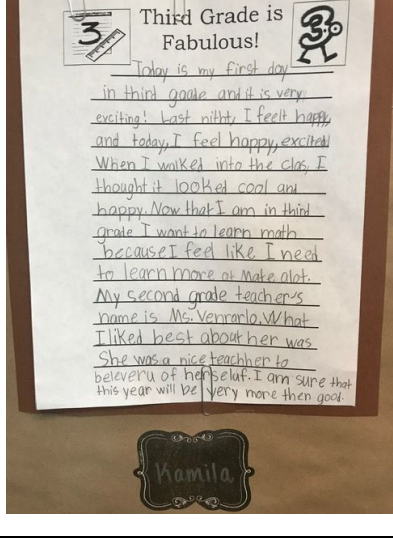 3
Third Grade is
Fabulous!
3
Today is my first day
in third gaade and it is very
exciting! Last nitht, I feelt happy,
and today, I feel happy, excited
When I walked into the clas, I
thought it looked cool and
happy. Now that I am in third
grade I want to learn math
because I feel like I need
to learn more at Make alot.
My second grade teacher's
name is Ms. Venrarlo. What
I liked best about her was
She was a nice teachher to
beleveru of herselaf. I am sure that
this year will be very more then good.
Kamila